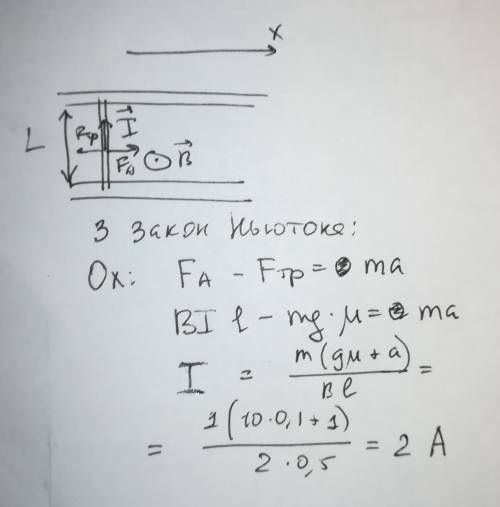 x
L
Fтр
I
FA
B
3 закон Ньютона:
Ox: FA - Fтр = ma
BIl - mg·μ = ma
I = m(gμ + a) / Bl =
= 1(10·0,1 + 1) / 2·0,5 = 2 A